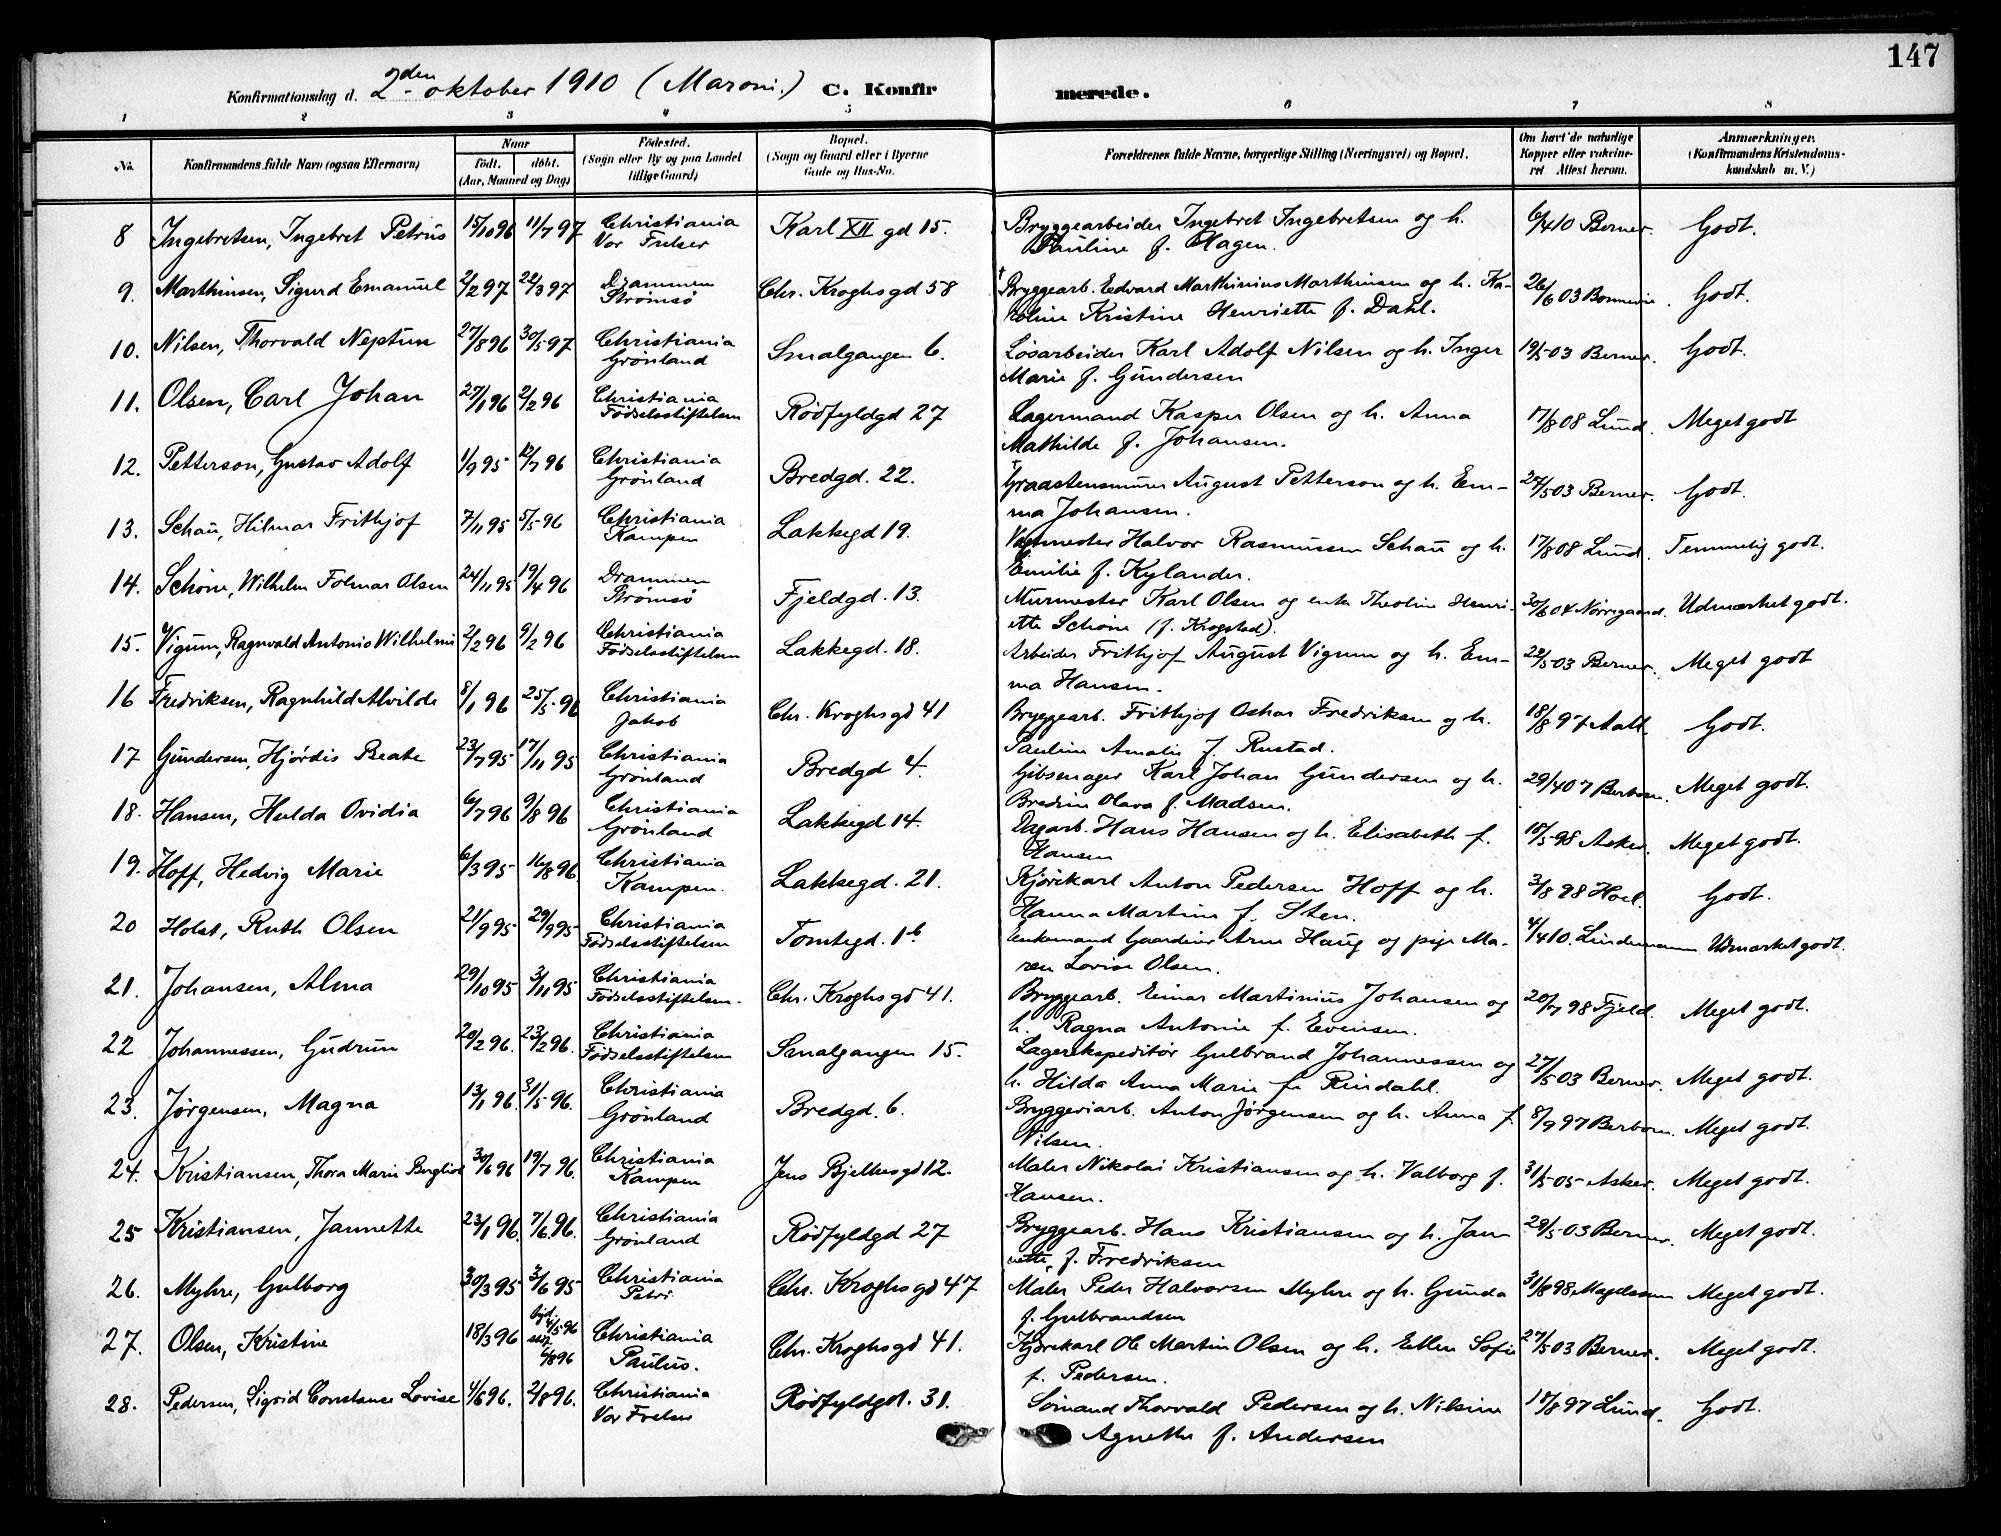 147
Konfirmationsdag d. 2den oktober 1910 (Maroni.) C. Konfirmerede.
1 2 3 4 5 6 7 8
No. Konfirmandens fulde Navn (ogsaa Efternavn) Naar født. døbt. (Aar, Maaned og Dag) Fødested. (Sogn eller By og paa Landet tillige Gaard) Bopæl. (Sogn og Gaard eller i Byerne Gade og Hus-No. Forældrenes fulde Navne, borgerlige Stilling (Næringsvei) og Bopæl. Om havt de naturlige Kopper eller vakcineret Attest herom. Anmærkninger. (Konfirmandens Kristendomskundskab m. V.)
8 Ingebretsen, Ingebret Petrus 15/10 96 11/7 97 Christiania Karl XII gd 15. Bryggearbeider Ingebret Ingebretsen og h. 6/4 10 Berner. Godt.
Vor Frelser Pauline f. Hagen.
9. Marthinsen, Sigurd Emanuel 2/2 97 22/3 97 Drammen Chr. Kroghsgd 58 Bryggearb. Edvard Marthinius Marthinsen og h. Ka- 26/6 03 Bonnevie. Godt.
Strømsø roline Kristine Henriette f. Dahl.
10. Nilsen, Thorvald Neptun 27/8 96 30/5 97 Christiania Smalgangen 6. Løsarbeider Karl Adolf Nilsen og h. Inger 19/5 03 Berner. Godt.
Grønland Marie f. Gundersen
11. Olsen, Carl Johan 27/1 96 2/2 96 Christiania Rødfyldgd 27 Lagermand Kasper Olsen og h. Anna 17/8 08 Lund. Meget godt
Fødselsstiftelsen Mathilde f. Johansen.
12. Petterson, Gustav Adolf 1/9 95 12/7 96 Christiania Bredgd. 22. Graastensmurer August Petterson og h. Em- 27/5 03 Berner. Godt.
Grønland ma Johansen.
13. Schau, Hilmar Frithjof 7/11 95 5/5 96 Christiania Lakkegd 19. Halvor Rasmussen Schau og h. 17/8 08 Lund. Temmelig godt.
Kampen Emilie f. Kylander.
14. Schøne, Wilhelm Folmar Olsen 24/11 95 19/4 96 Drammen Fjeldgd. 13. Murmester Karl Olsen og enke Theoline Henri- 30/6 04 Nørregaard. Udmærket godt.
Strømsø ette Schøne (f. Krogstad).
15. Vigum, Ragnvald Antonio Wilhelm 2/2 96 9/2 96 Christiania Lakkegd. 18. Arbeider Frithjof August Vigum og h. Em- 22/5 03 Berner. Meget godt
Fødselsstiftelsen ma Hansen.
16 Fredriksen, Ragnhild Alvilde 8/1 96 25/5 96 Christiania Chr. Kroghsgd 41 Bryggearb. Frithjof Oskar Fredriksen og h. 18/8 97 Aall. Godt.
Jakob Pauline Amalie f. Rustad.
17 Gundersen, Hjørdis Beate 23/7 95 17/11 95 Christiania Bredgd 4. Gibsmager Karl Johan Gundersen og h. 29/4 07 Berbom. Meget godt.
Grønland Bredine Olava f. Madsen.
18. Hansen, Hulda Ovidia 6/7 96 9/8 96 Christiania Lakkegd 14. Dagarb. Hans Hansen og h. Elisabeth f. 18/5 98 Asker. Meget godt.
Grønland Hansen
19. Hoff, Hedvig Marie 6/3 95 16/8 96. Christiania Lakkegd. 21. Kjørekarl Anton Pedersen Hoff og h. 3/8 98 Hoel. Godt.
Kampen. Hanna Martine f. Sten.
20 Holst, Ruth Olsen 21/9 95 29/9 95 Christiania Tomtegd. 1b Enkemand Gaardeier Arne Haug og pige Ma- 4/4 10. Lindemann Udmærket godt.
Fødselsstiftelsen ren Lovise Olsen.
21. Johansen, Alma 29/10 95 3/11 95 Christiania Chr. Kroghsgd 41. Bryggearb. Einar Martinius Johansen og 20/7 98 Fjeld. Meget godt.
Fødselsstiftelsen. h. Ragna Antonie f. Evensen.
22 Johannessen, Gudrun 20/2 96. 23/2 96. Christiania Smalgangen 15. Lagerekspeditør Gulbrand Johannessen og 27/5 03 Berner. Meget godt.
Fødselsstiftelsen h. Hilda Anna Marie f. Rindahl.
23. Jørgensen, Magna 13/1 96. 31/5 96. Christiania Bredgd. 6. Bryggeriarb. Anton Jørgensen og h. Anna f. 8/9 97 Berbom. Meget godt.
Grønland Nilsen.
24. Kristiansen, Thora Marie Bergliot 30/6 96 19/7 96. Christiania Jens Bjelkesgd 12. Maler Nikolai Kristiansen og h. Valborg f. 31/5 05 Asker. Meget godt.
Kampen Hansen.
25 Kristiansen, Jannette 23/1 96. 7/6 96. Christiania Rødfyldgd 27 Bryggearb. Hans Kristiansen og h. Jan 29/5 03 Berner. Meget godt.
Grønland nette, f. Fredriksen
26. Myhre, Gulborg 30/3 95 3/6 95 Christiania Chr. Kroghsgd 47 Maler Peder Halvorsen Myhre og h. Gunda 31/8 98, Magelssen Meget godt.
Petri f. Gulbrandsen
27. Olsen, Kristine 18/3 96 4/5 96 Christiania Chr. Kroghsgd 41. Kjørekarl Ole Martin Olsen og h. Ellen Sofie 27/5 03 Berner. Meget godt.
6/8 96 Paulus. f. Pedersen.
28. Pedersen, Sigrid Constance Lovise 4/6 96. 2/8 96. Christiania Rødfyldgd. 31. Sømand Thorvald Pedersen og h. Nilsine 17/8 97 Lund. Godt.
Vor Frelser Agnethe f. Andersen